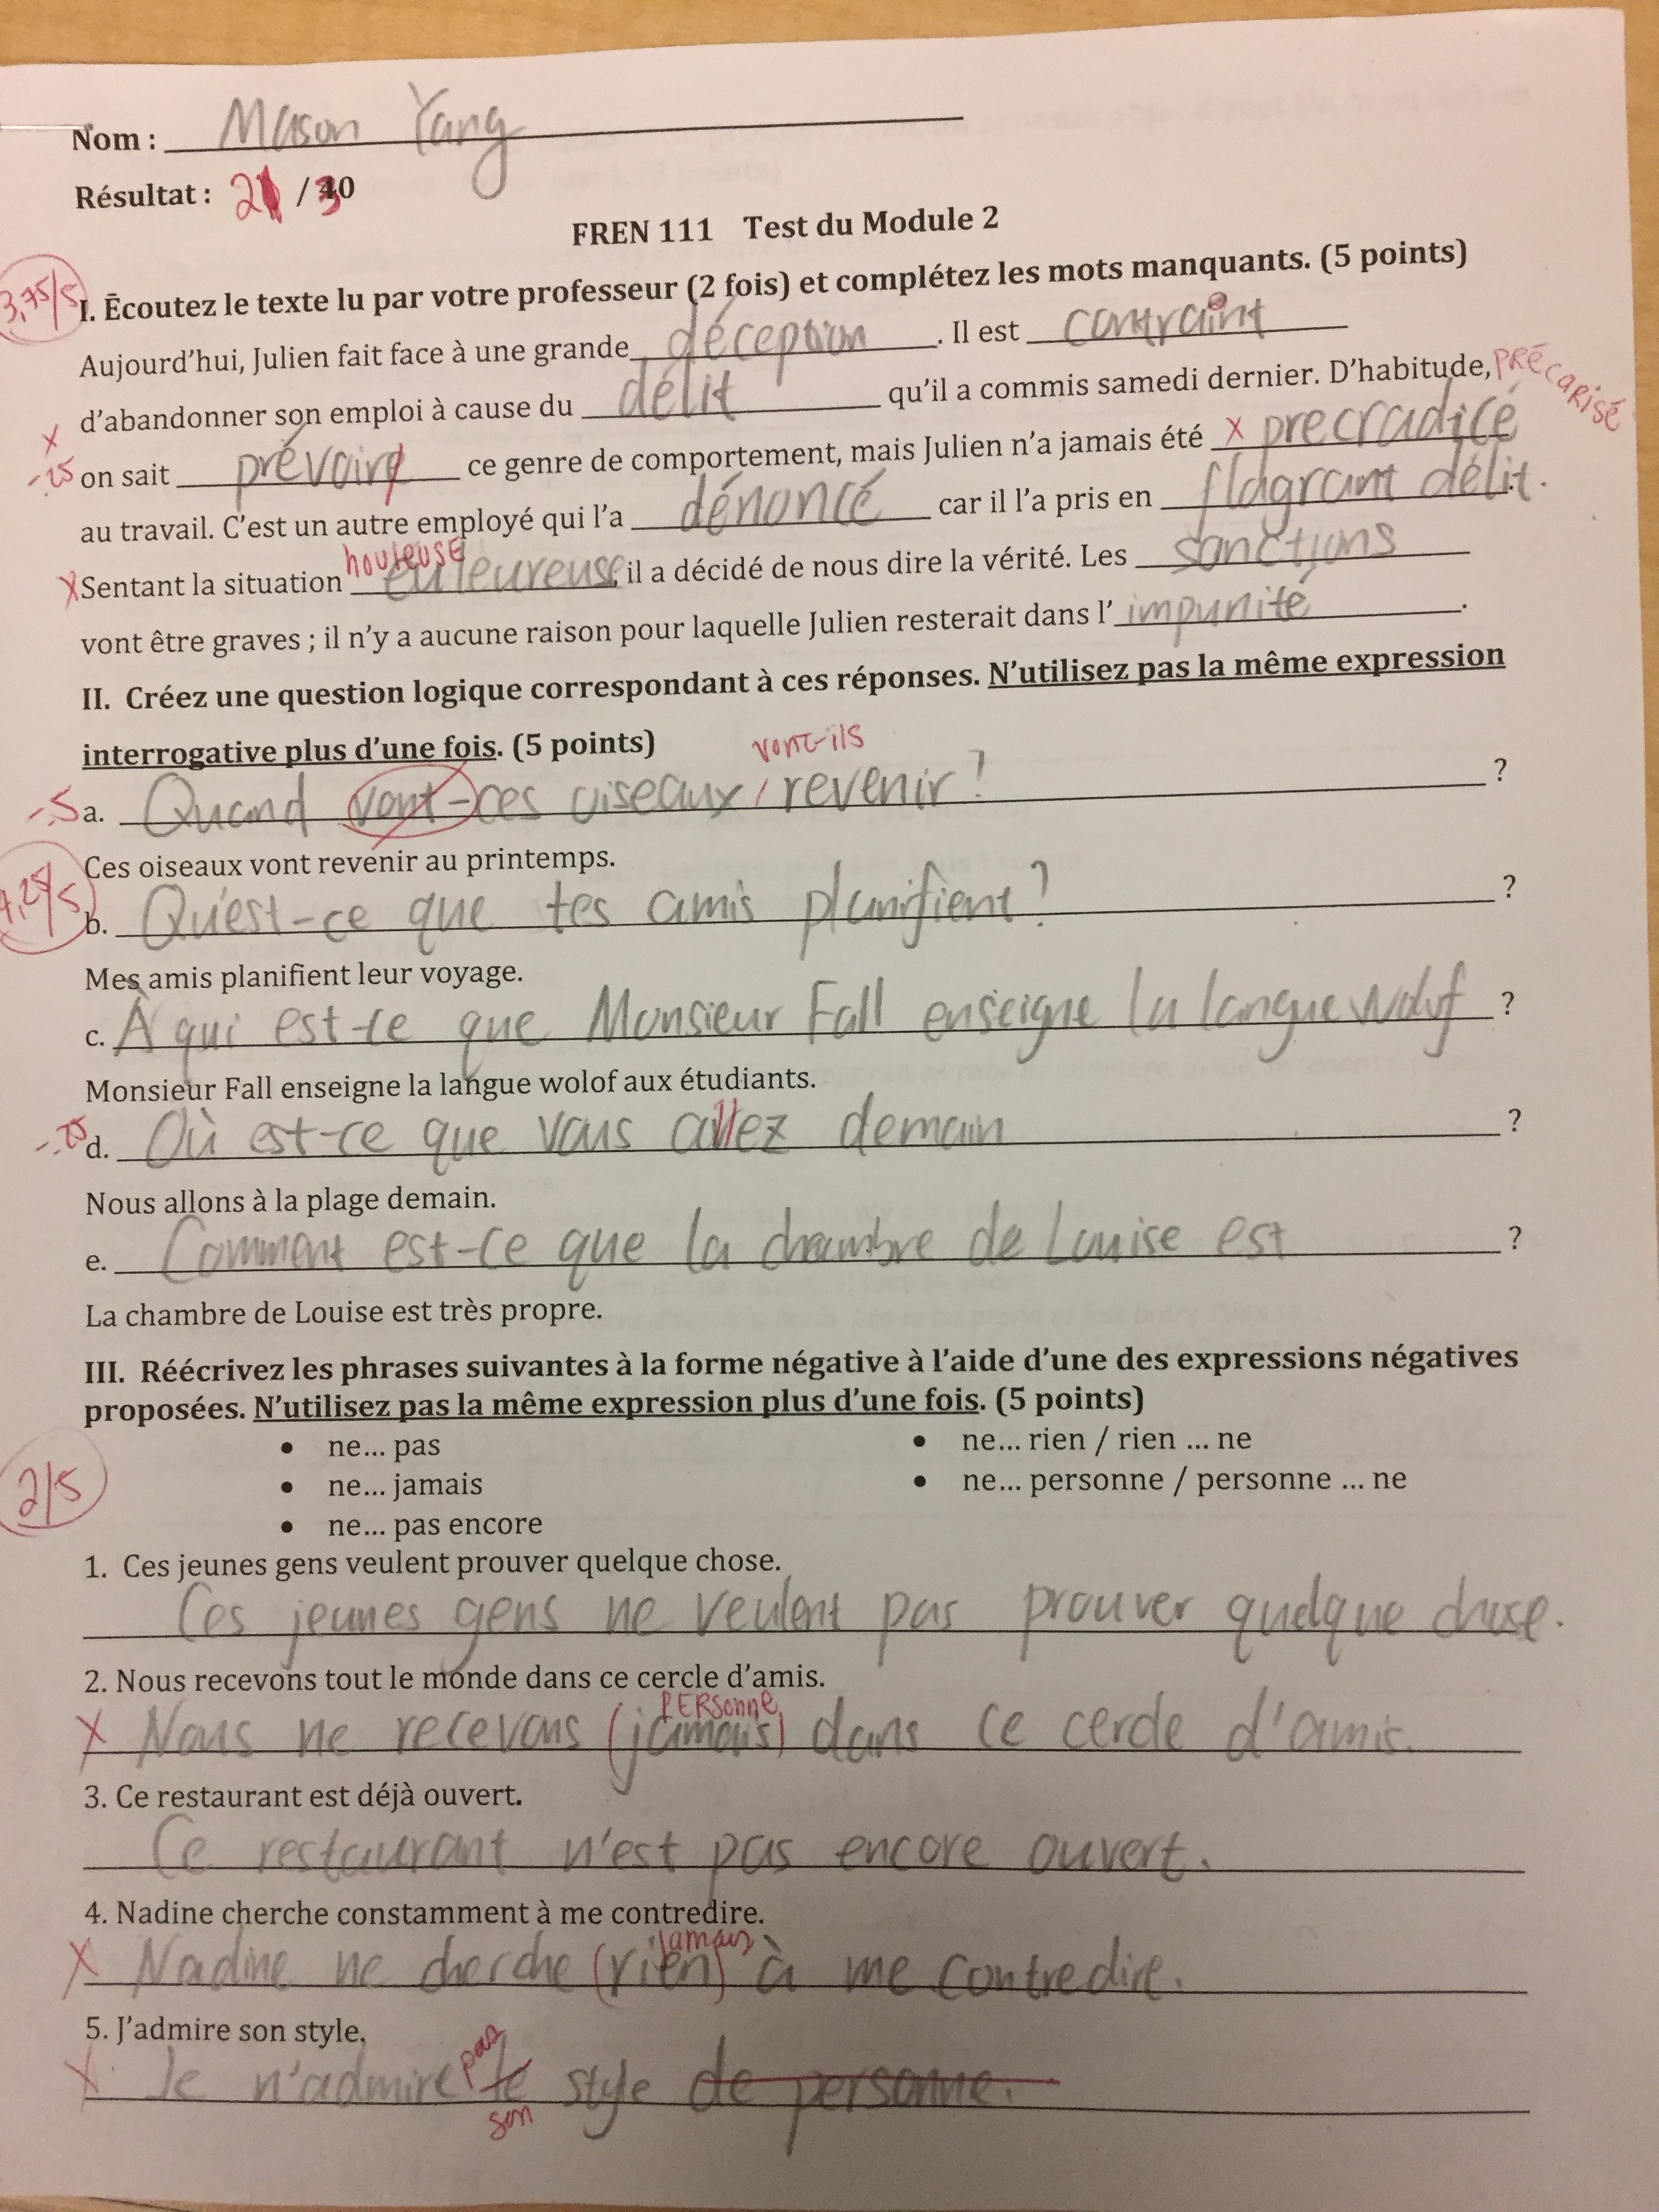 Nom : Mason Yang
Résultat : 21 / 30
FREN 111 Test du Module 2
3,75/5
I. Écoutez le texte lu par votre professeur (2 fois) et complétez les mots manquants. (5 points)
Aujourd'hui, Julien fait face à une grande déception. Il est contraint
d'abandonner son emploi à cause du délit qu'il a commis samedi dernier. D'habitude, PRÉCARISÉ
X -.25 on sait prévoire ce genre de comportement, mais Julien n'a jamais été X precradicé
au travail. C'est un autre employé qui l'a dénoncé car il l'a pris en flagrant délit.
houleuse
X Sentant la situation euleureuse, il a décidé de nous dire la vérité. Les sanctions
vont être graves ; il n'y a aucune raison pour laquelle Julien resterait dans l'impunité.
II. Créez une question logique correspondant à ces réponses. N'utilisez pas la même expression
interrogative plus d'une fois. (5 points)
vont-ils
-.5 a. Quand vont-ces oiseaux / revenir? ?
Ces oiseaux vont revenir au printemps.
4,25/5
b. Qu'est-ce que tes amis planifient? ?
Mes amis planifient leur voyage.
c. À qui est-ce que Monsieur Fall enseigne la langue wolof ?
Monsieur Fall enseigne la langue wolof aux étudiants.
-.25 d. Où est-ce que vous allez demain ?
Nous allons à la plage demain.
e. Comment est-ce que la chambre de Louise est ?
La chambre de Louise est très propre.
III. Réécrivez les phrases suivantes à la forme négative à l'aide d'une des expressions négatives
proposées. N'utilisez pas la même expression plus d'une fois. (5 points)
• ne... pas • ne... rien / rien ... ne
• ne... jamais • ne... personne / personne ... ne
• ne... pas encore
2/5
1. Ces jeunes gens veulent prouver quelque chose.
Ces jeunes gens ne veulent pas prouver quelque chose.
2. Nous recevons tout le monde dans ce cercle d'amis.
PERSonne
X Nous ne recevons (jamais) dans ce cercle d'amis.
3. Ce restaurant est déjà ouvert.
Ce restaurant n'est pas encore ouvert.
4. Nadine cherche constamment à me contredire.
jamais
X Nadine ne cherche (rien) à me contredire.
5. J'admire son style.
pas
X Je n'admire le style de personne.
son